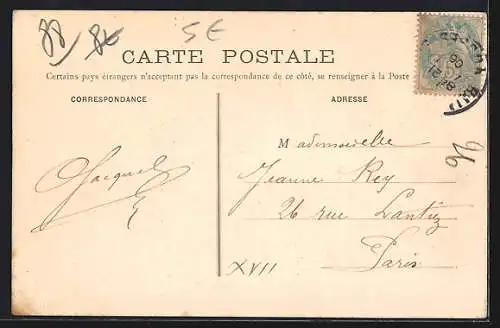 88 8E 5E
CARTE POSTALE
Certains pays étrangers n'acceptant pas la correspondance de ce côté, se renseigner à la Poste
CORRESPONDANCE
ADRESSE
Mademoiselle
Jeanne Rey
26 rue Lantiez
Paris
XVII
26